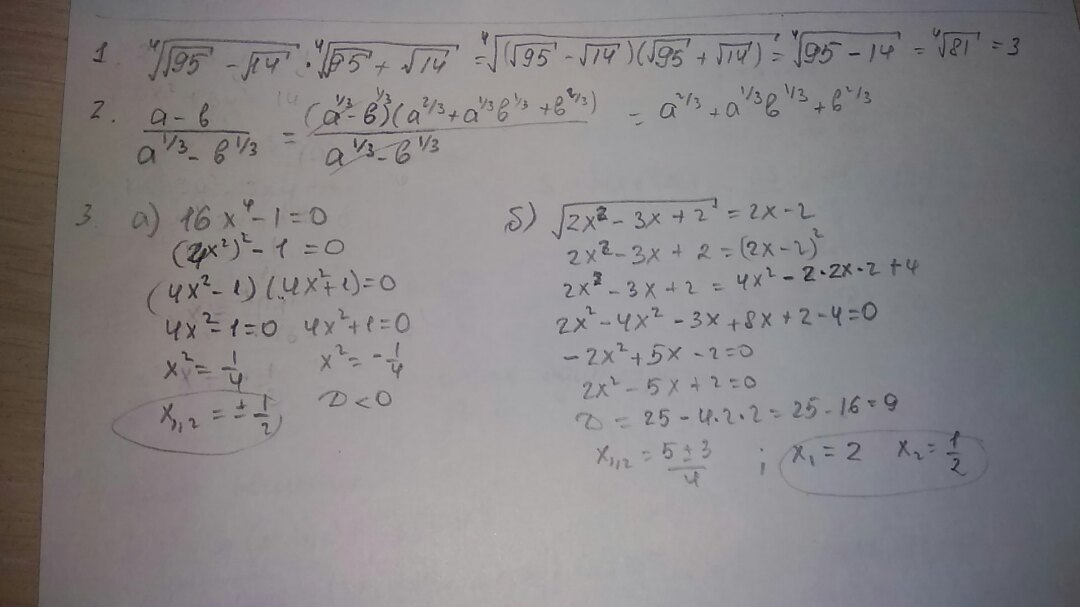 1. ⁴√(√95 - √14) · ⁴√(√95 + √14) = ⁴√((√95 - √14)(√95 + √14)) = ⁴√(95 - 14) = ⁴√81 = 3
2. (a - в)/(a^1/3 - в^1/3) = (a^1/3 - в^1/3)(a^2/3 + a^1/3 в^1/3 + в^2/3)/(a^1/3 - в^1/3) = a^2/3 + a^1/3 в^1/3 + в^2/3
3. а) 16x⁴ - 1 = 0
(4x²)² - 1 = 0
(4x² - 1)(4x² + 1) = 0
4x² - 1 = 0 4x² + 1 = 0
x² = 1/4 x² = - 1/4
x₁,₂ = ± 1/2 D < 0
б) √(2x² - 3x + 2) = 2x - 2
2x² - 3x + 2 = (2x - 2)²
2x² - 3x + 2 = 4x² - 2·2x·2 + 4
2x² - 4x² - 3x + 8x + 2 - 4 = 0
-2x² + 5x - 2 = 0
2x² - 5x + 2 = 0
D = 25 - 4·2·2 = 25 - 16 = 9
x₁,₂ = (5 ± 3)/4 ; x₁ = 2 x₂ = 1/2